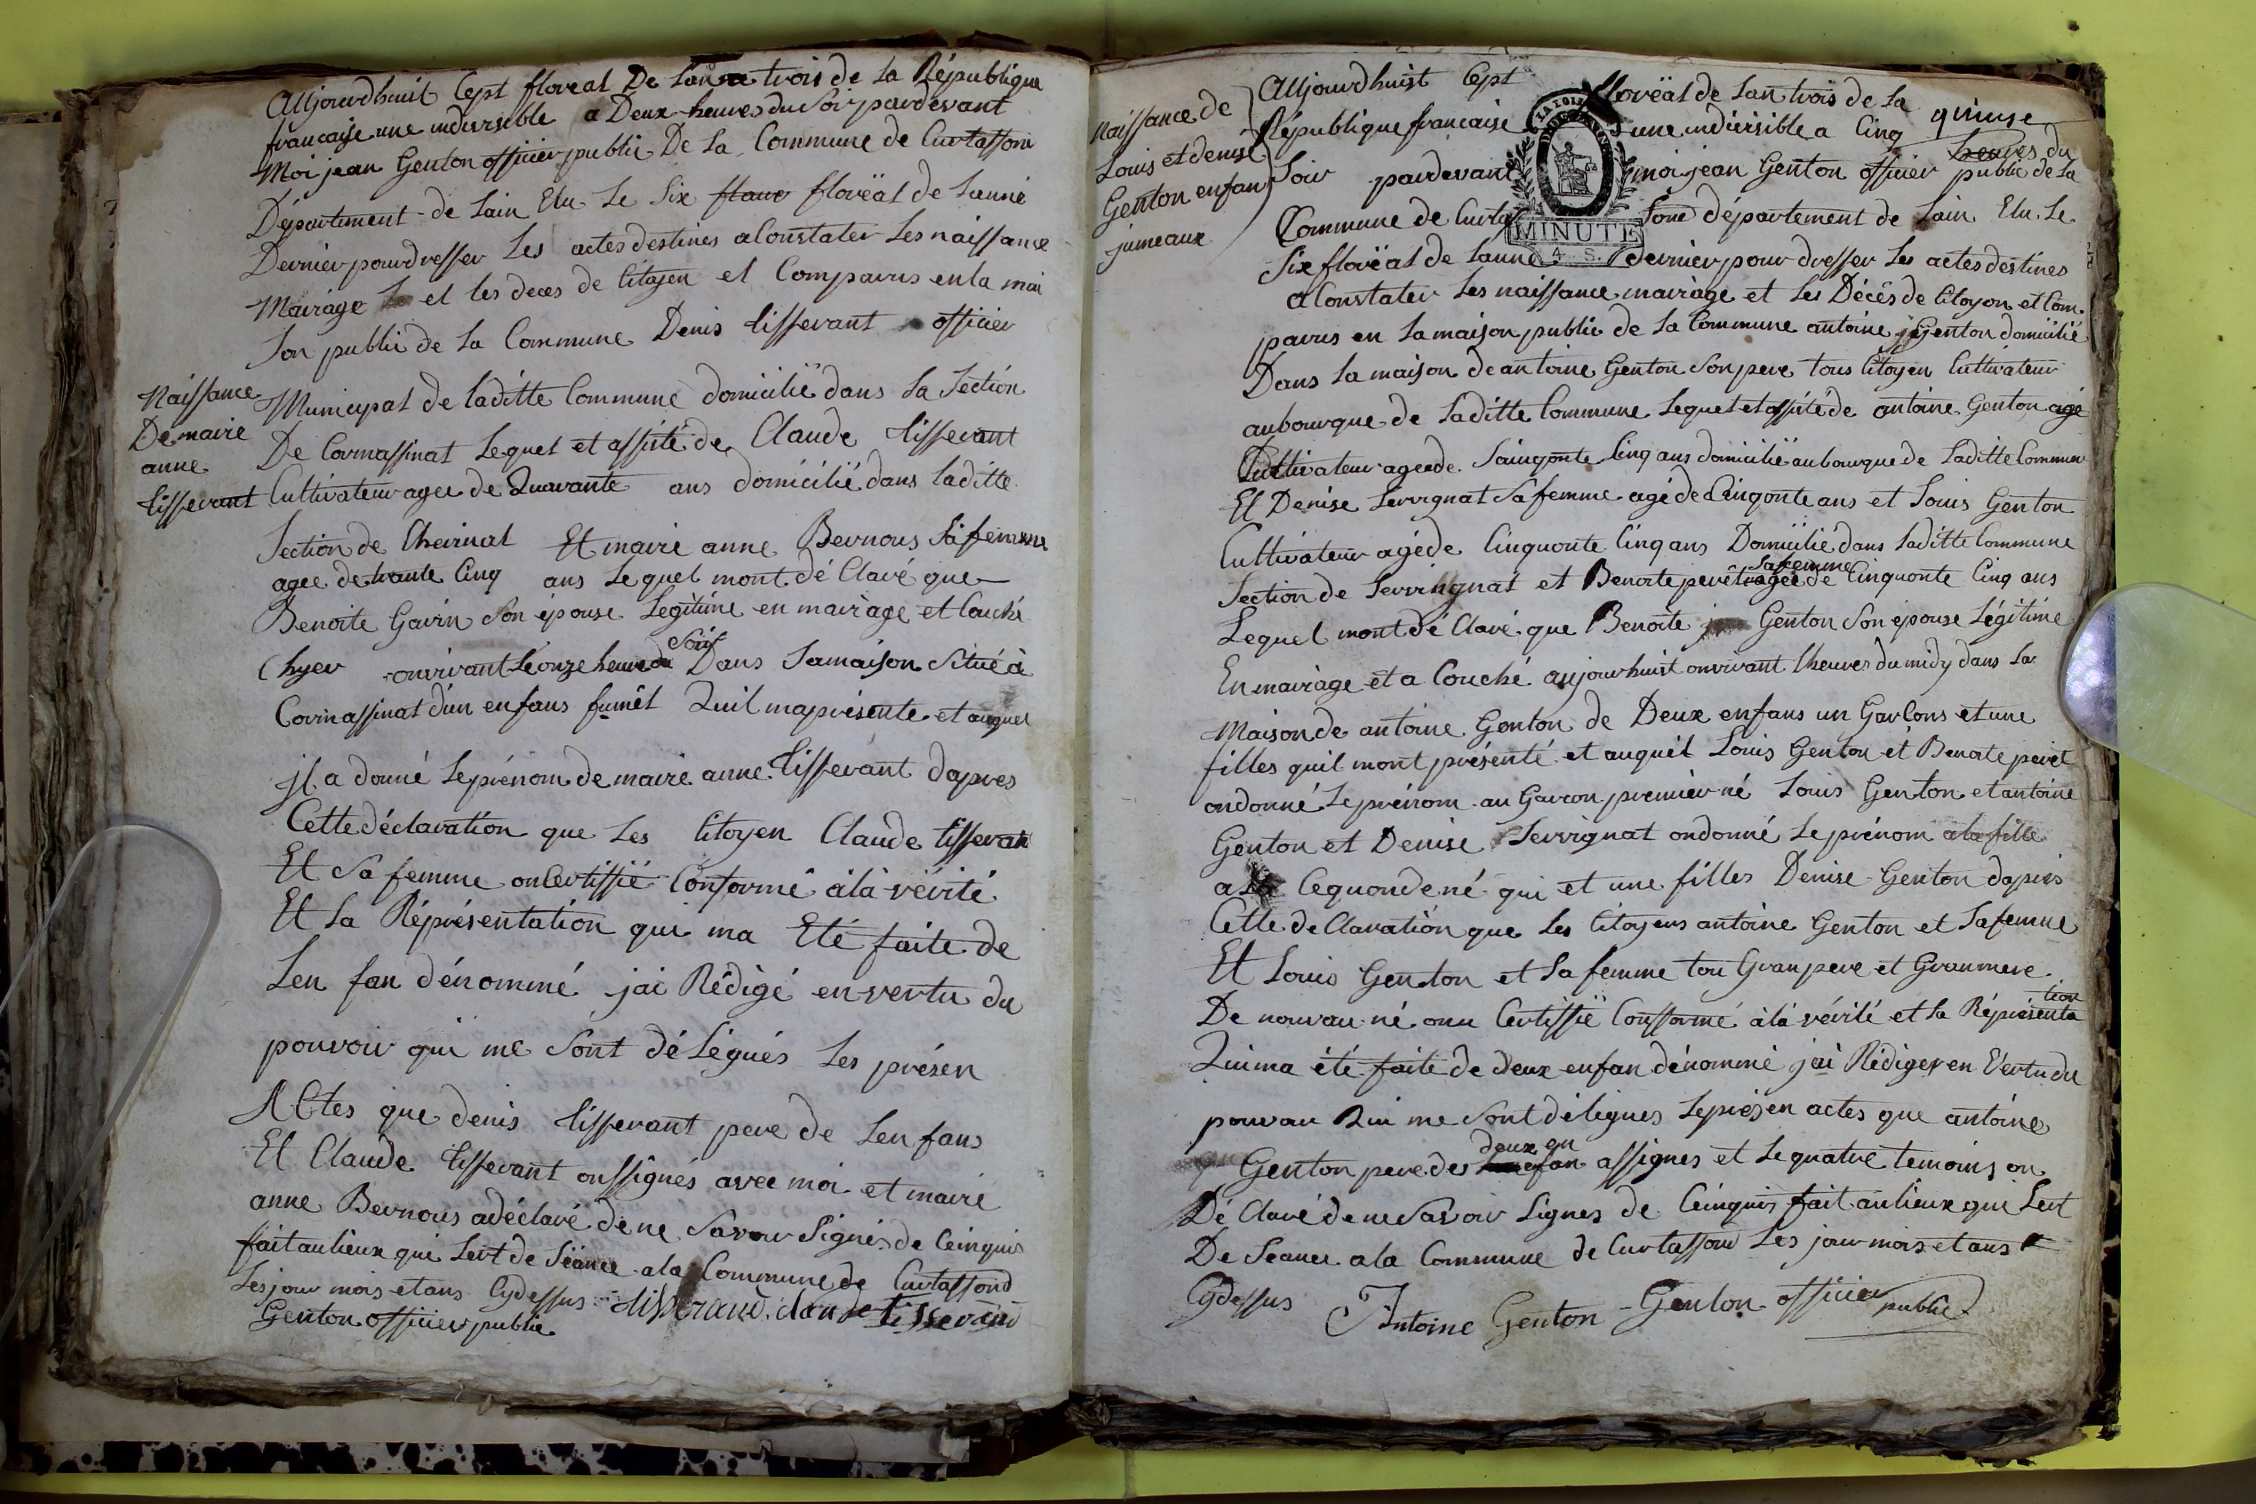 Aujourdhuit Cept floreal De lan trois de la République
francaise une indivisible a Deux heures du Soir pardevant
Moi jean Genton officier public De La Commune de Curtassone
Département de Lain Elu Le Six floreäl de Lanné
Dernier pour dresser Les actes destines a Constater Les naissance
Mairage et les deces de Citoyen et Comparus en la mai
Son public de La Commune Denis tisserant officier
Naissance
De maire
anne
tisserant
Municipal de laditte Commune domicilié dans La Section
De Cornassinat Lequel et assité de Claude tisserant
Cultivateur agee de Quarante ans domicilié dans laditte
Section de Cheirnat Et maire anne Bernous Sa femme
agee de trante Cinq ans Lequel mont dé Claré que
Benoite Gavin Son épouse Legitime en mairage et Couché
hyer onvirant Le onze heure du Soir Dans Samaison Situé à
Cornassinat d'un enfans fumêl Quil mapriesente et auquel
jl a donné Le prénom de maire anne tisserant dapres
Cette déclaration que Les Citoyen Claude tisseran
Et Sa femme on Certiffié Conforme à là vérité
Et La Répréséntation qui ma Eté faite de
Len fan dénommé jai Rédigé en vertu du
pouvoir qui me Sont délégués Les présen
Actes que denis tisserant pere de Lenfans
Et Claude tisserant onssignés avec moi et mairé
anne Bernous adéclaré de ne Savoir Signés de Ceinquis
fait aulieux qui Sert de Séance ala Commune de Curtassond
Les jour mois et ans Cydessus tisserand claude tisserand
Genton officier public
naissance de
Louis et denise
Genton enfan
jumeaux
quinse
Aujourdhuit Cept floreäl de Lan trois de La
République francaise une indivisible a Cinq heures du
Soir pardevant moi jean Genton officier public de La
LA LOI
MINUTE
4 S.
Commune de Curtassone département de Lain Elu Le
Six floreäl de Lanné dernier pour dresser Les actes destines
a Constater Les naissance mairage et Les Décês de Citoyen et Com
parus en Lamaison public de La Commune antoine Genton domicilié
Dans La maison de antoine Genton Son pere tous Citoyen Cultivateur
aubourque de Laditte Commune Lequel et assité de antoine Genton agé
Cultivateur agé de Soinqonte Cinq ans domicilié aubourque de Laditte Commun
Et Denise Servignat Sa femme agé de Cinqonte ans et Louis Genton
Cultivateur agé de Cinquonte Cinq ans Domicilié dans Laditte Commune
Section de Servignat et Benoite perêt Safemme agee de Cinquonte Cinq ans
Lequel mont dé Claré que Benoite Genton Son épouse Légitime
En mairage et a Couché aujourhuit onvirant Lheures du midy dans La
Maison de antoine Genton de Deux enfans un Garcons et une
filles quil mont présenté et auquêl Louis Genton et Benoite perêt
ondonné Le prénom au Garcon premier né Louis Genton et antoine
Genton et Denise Servignat ondonné Le prénom ala fille
a La Cequonde né qui et une filles Denise Genton dapres
Cette de Claration que Les Citoyens antoine Genton et Safemme
Et Louis Genton et La femme tou Granpere et Granmere
De nouvau né onn Certiffié Confformé à là vérité et La Réprésenta
tion
Qui ma été faite de deux enfan dénommé jai Rédiger en Vertu du
pouvoir Qui me Sont délignes Le présen actes que antoine
Genton pere de deux en fan assignes et Le quatre temoins on
Dé Claré de ne Savoir Signes de Ceinquis fait aulieux qui Sert
De Seance ala Commune de Curtassond Les jour mois et ans
Cydessus Antoine Genton Genton officier public